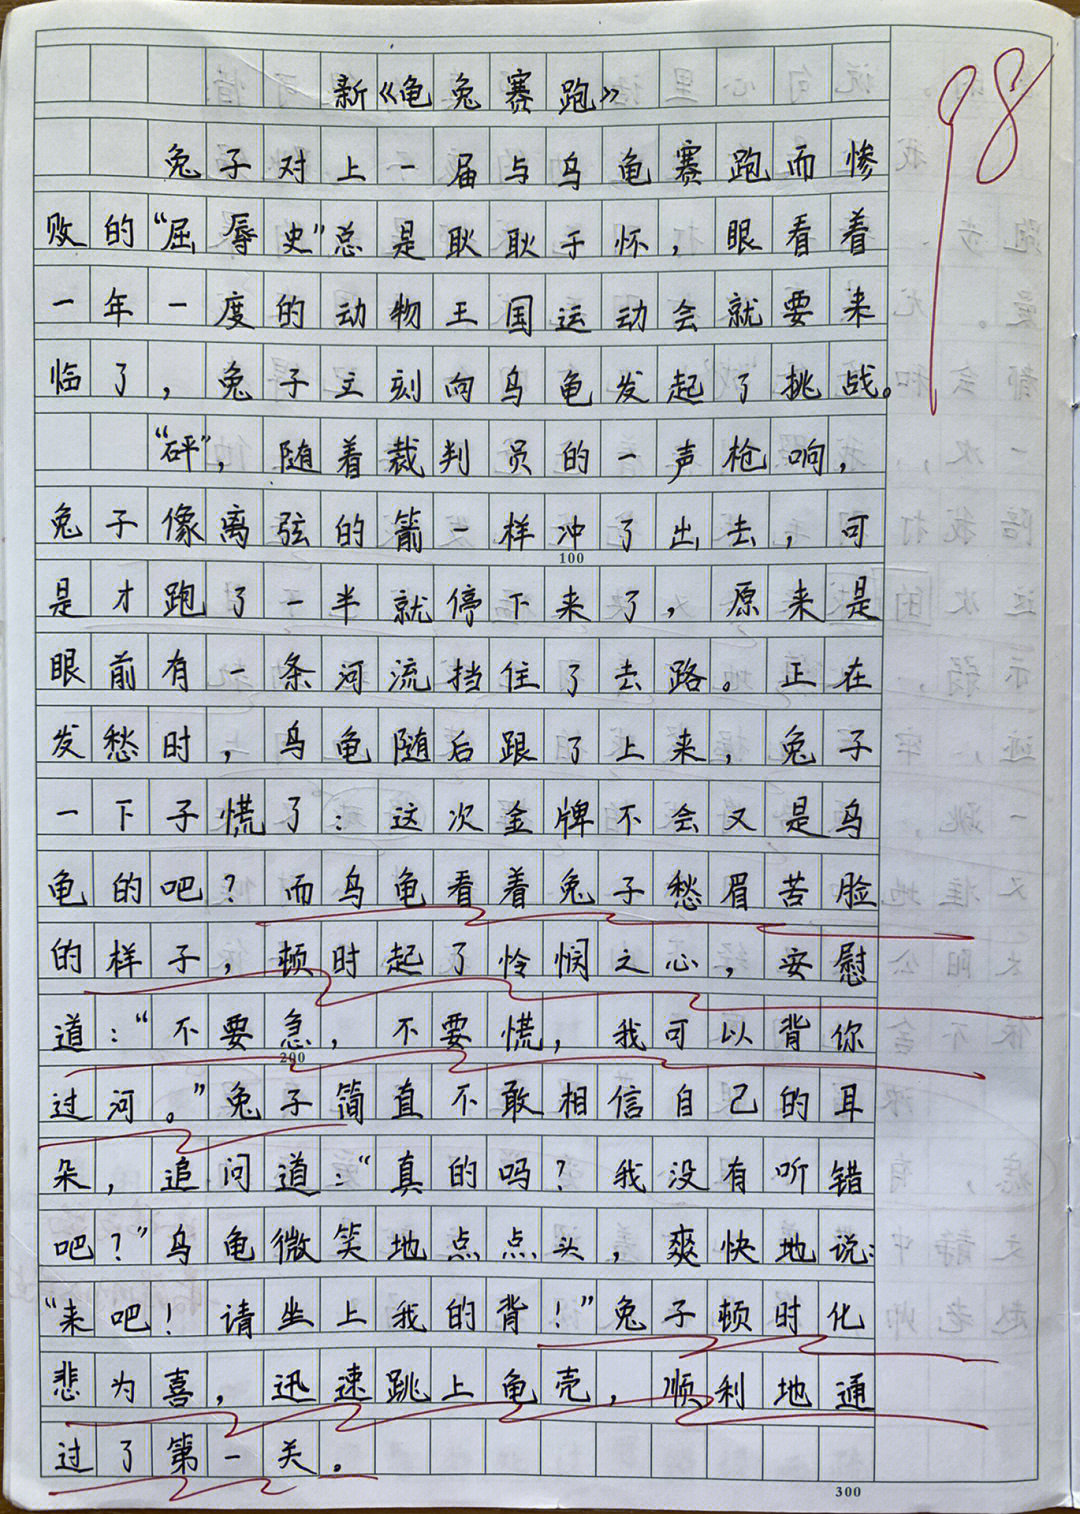 新《龟兔赛跑》
98
兔子对上一届与乌龟赛跑而惨
败的“屈辱史”总是耿耿于怀，眼看着
一年一度的动物王国运动会就要来
临了，兔子立刻向乌龟发起了挑战。
“砰”，随着裁判员的一声枪响，
兔子像离弦的箭一样冲了出去，可
100
是才跑了一半就停下来了，原来是
眼前有一条河流挡住了去路。正在
发愁时，乌龟随后跟了上来，兔子
一下子慌了：这次金牌不会又是乌
龟的吧？而乌龟看着兔子愁眉苦脸
的样子，顿时起了怜悯之心，安慰
道：“不要急，不要慌，我可以背你
200
过河。”兔子简直不敢相信自己的耳
朵，追问道：“真的吗？我没有听错
吧？”乌龟微笑地点点头，爽快地说：
“来吧！请坐上我的背！”兔子顿时化
悲为喜，迅速跳上龟壳，顺利地通
过了第一关。
300